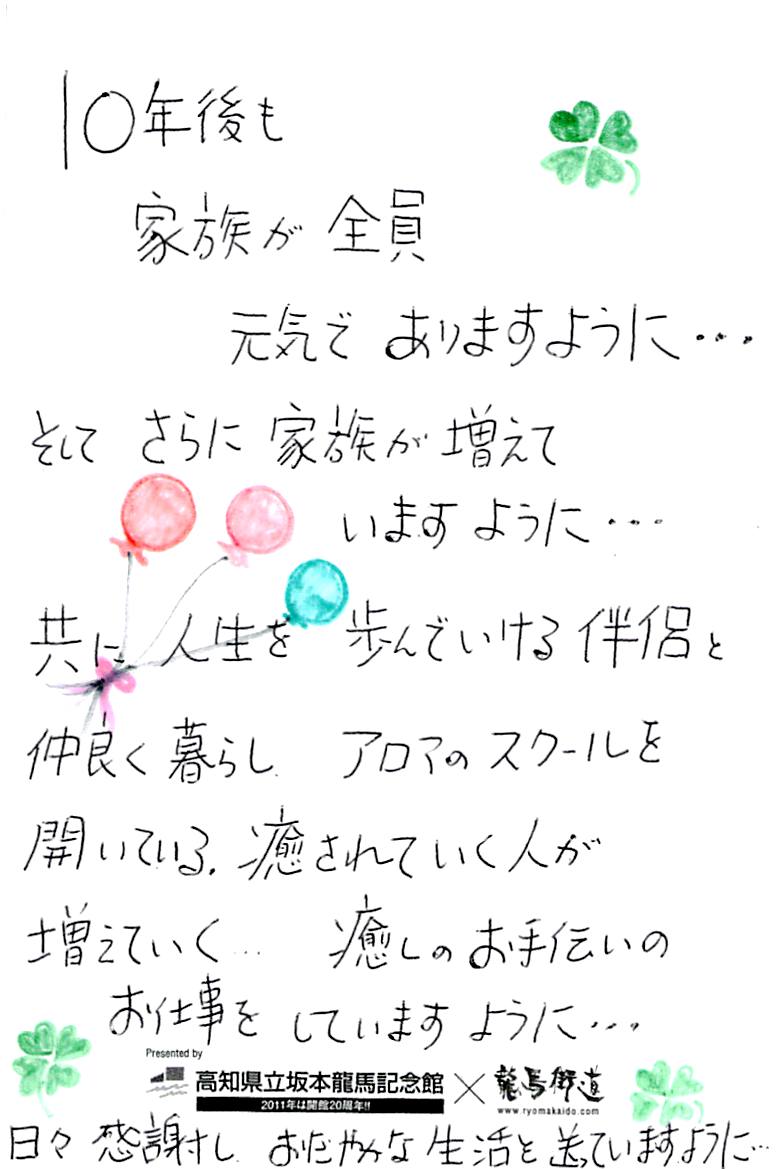 10年後も
家族が 全員
元気で ありますように・・・
そして さらに 家族が 増えて
います ように・・・
共に 人生を 歩んでいける 伴侶と
仲良く 暮らし アロマの スクールを
開いている. 癒されていく人が
増えていく… 癒しの お手伝いの
お仕事を しています ように・・・
Presented by
高知県立坂本龍馬記念館 × 龍馬街道
2011年は開館20周年!!
www.ryomakaido.com
日々 感謝し おだやかな 生活を 送っていますように…